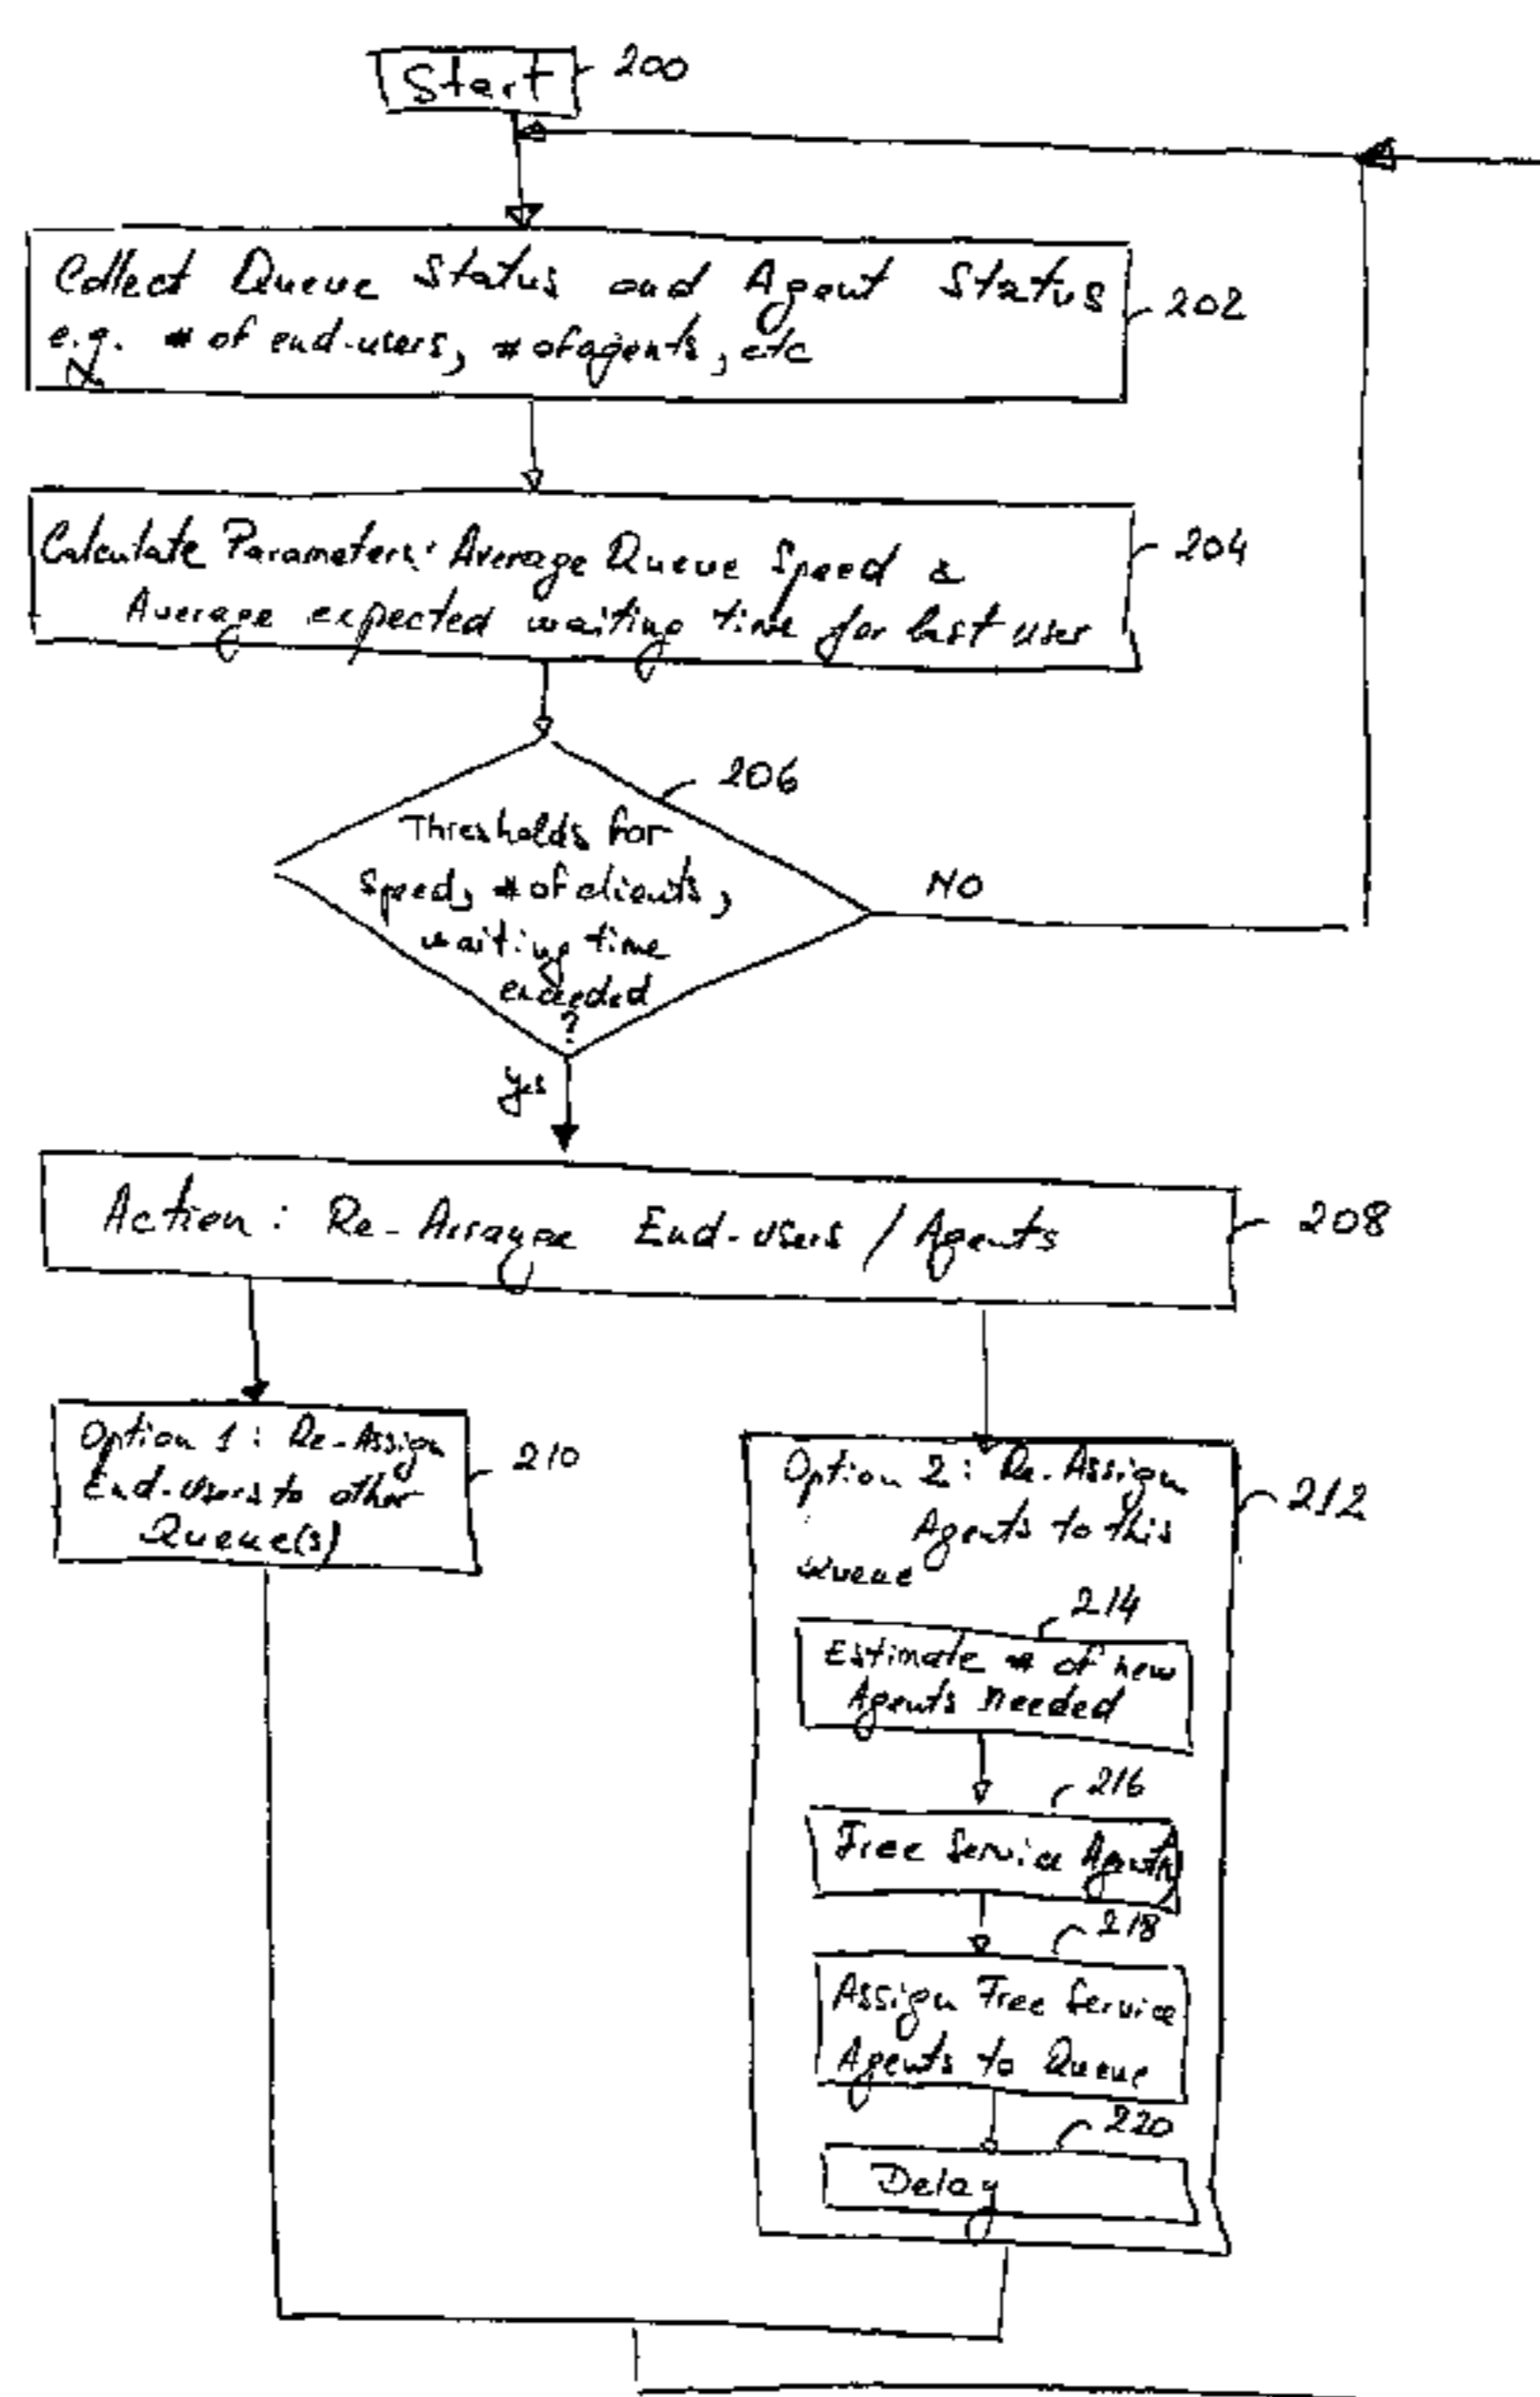 Start
200
Collect Queue Status and Agent Status
e.g. # of end-users, # of agents, etc
202
Calculate Parameters: Average Queue Speed &
Average expected waiting time for last user
204
206
Thresholds for
Speed, # of clients,
waiting time
exceeded
?
NO
yes
Action: Re-Arrange End-users / Agents
208
Option 1: Re-Assign
End-Users to other
Queue(s)
210
Option 2: Re-Assign
Agents to this
Queue
212
214
Estimate # of new
Agents needed
216
Free Service Agents
218
Assign Free Service
Agents to Queue
220
Delay